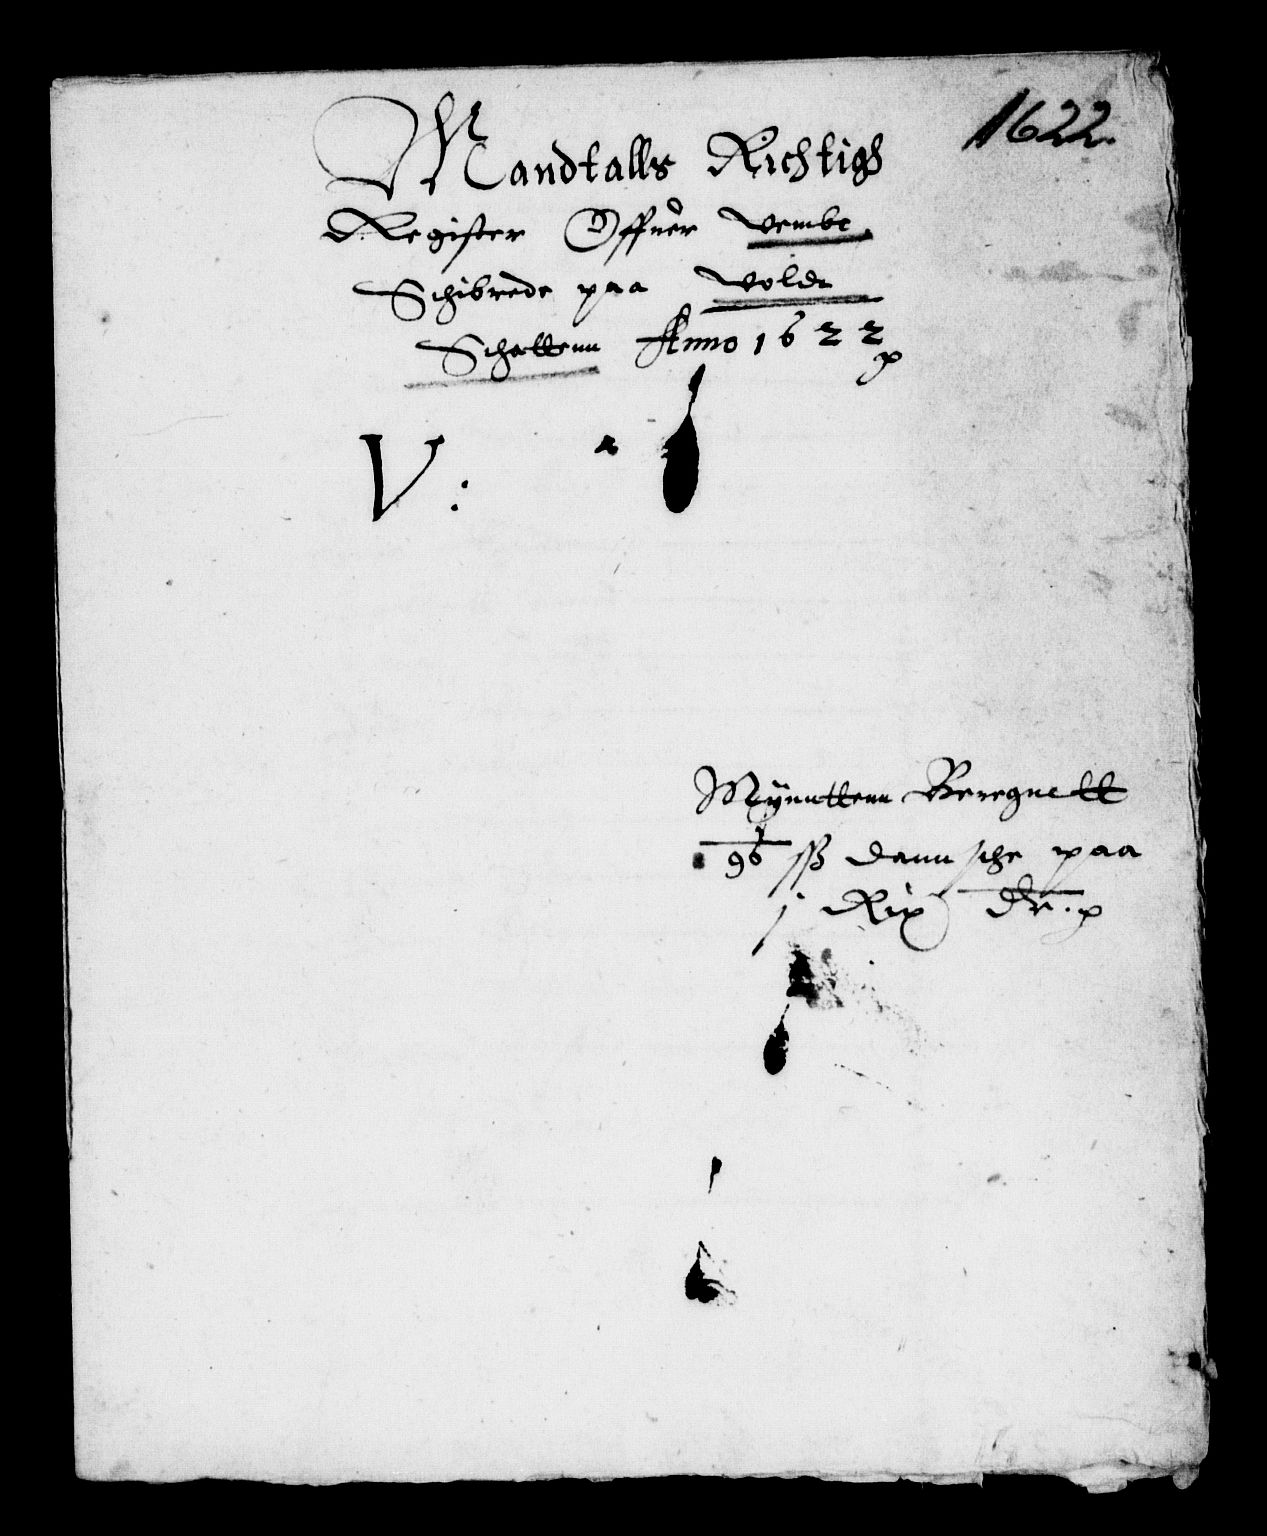 1622.
Mandtalls Richtigh
Register Offuer Vembe
Schibrede paa Volde
Schattenn Anno 1622
V:
Mÿnnttenn Beregnett
96 sß dannsche paa
1 Rix dlr.